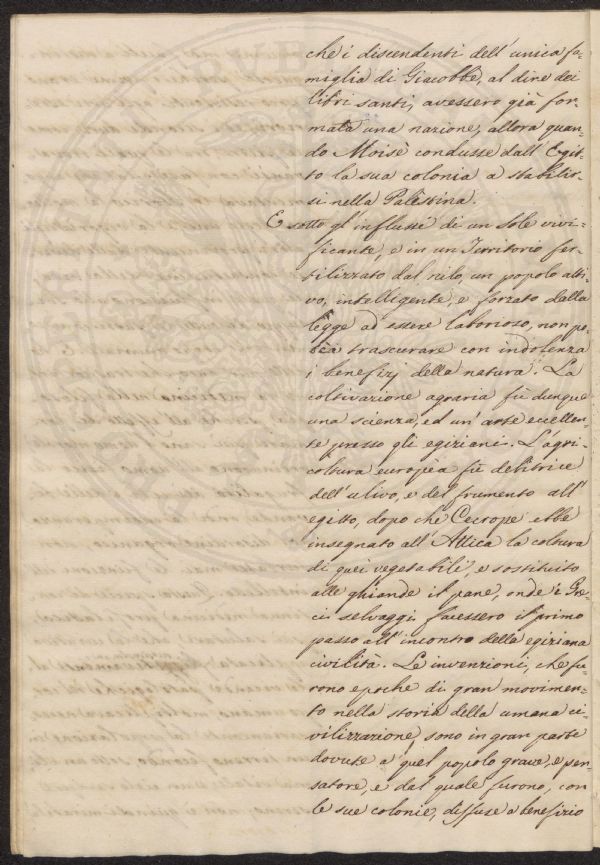 che i discendenti dell'unica fa-
miglia di Giacobbe, al dire dei
libri santi, avessero già for-
mata una nazione, allora quan-
do Moisè condusse dall'Egit-
to la sua colonia a stabilir-
si nella Palestina.
E sotto gl'influssi di un Sole vivi-
ficante, e in un Territorio fer-
tilizzato dal nilo, un popolo atti-
vo, intelligente, e forzato dalla
legge ad essere laborioso, non po-
tea trascurare con indolenza
i benefizj della natura. La
coltivazione agraria fù dunque
una scienza, ed un'arte eccellen-
te presso gli egiziani. L'agri-
coltura europèa fù debitrice
dell'ulivo, e del frumento all'
egitto, dopo che Cecrope ebbe
insegnato all'Attica la coltura
di quei vegetabili, e sostituito
alle ghiande il pane, onde i Gre-
ci selvaggi facessero il primo
passo all'incontro della egiziana
civilità. Le invenzioni, che fu-
rono epoche di gran movimen-
to nella storia della umana ci-
vilizzazione, sono in gran parte
dovute a quel popolo grave, e pen-
satore, e dal quale furono, con
le sue colonie, diffuse a benefizio